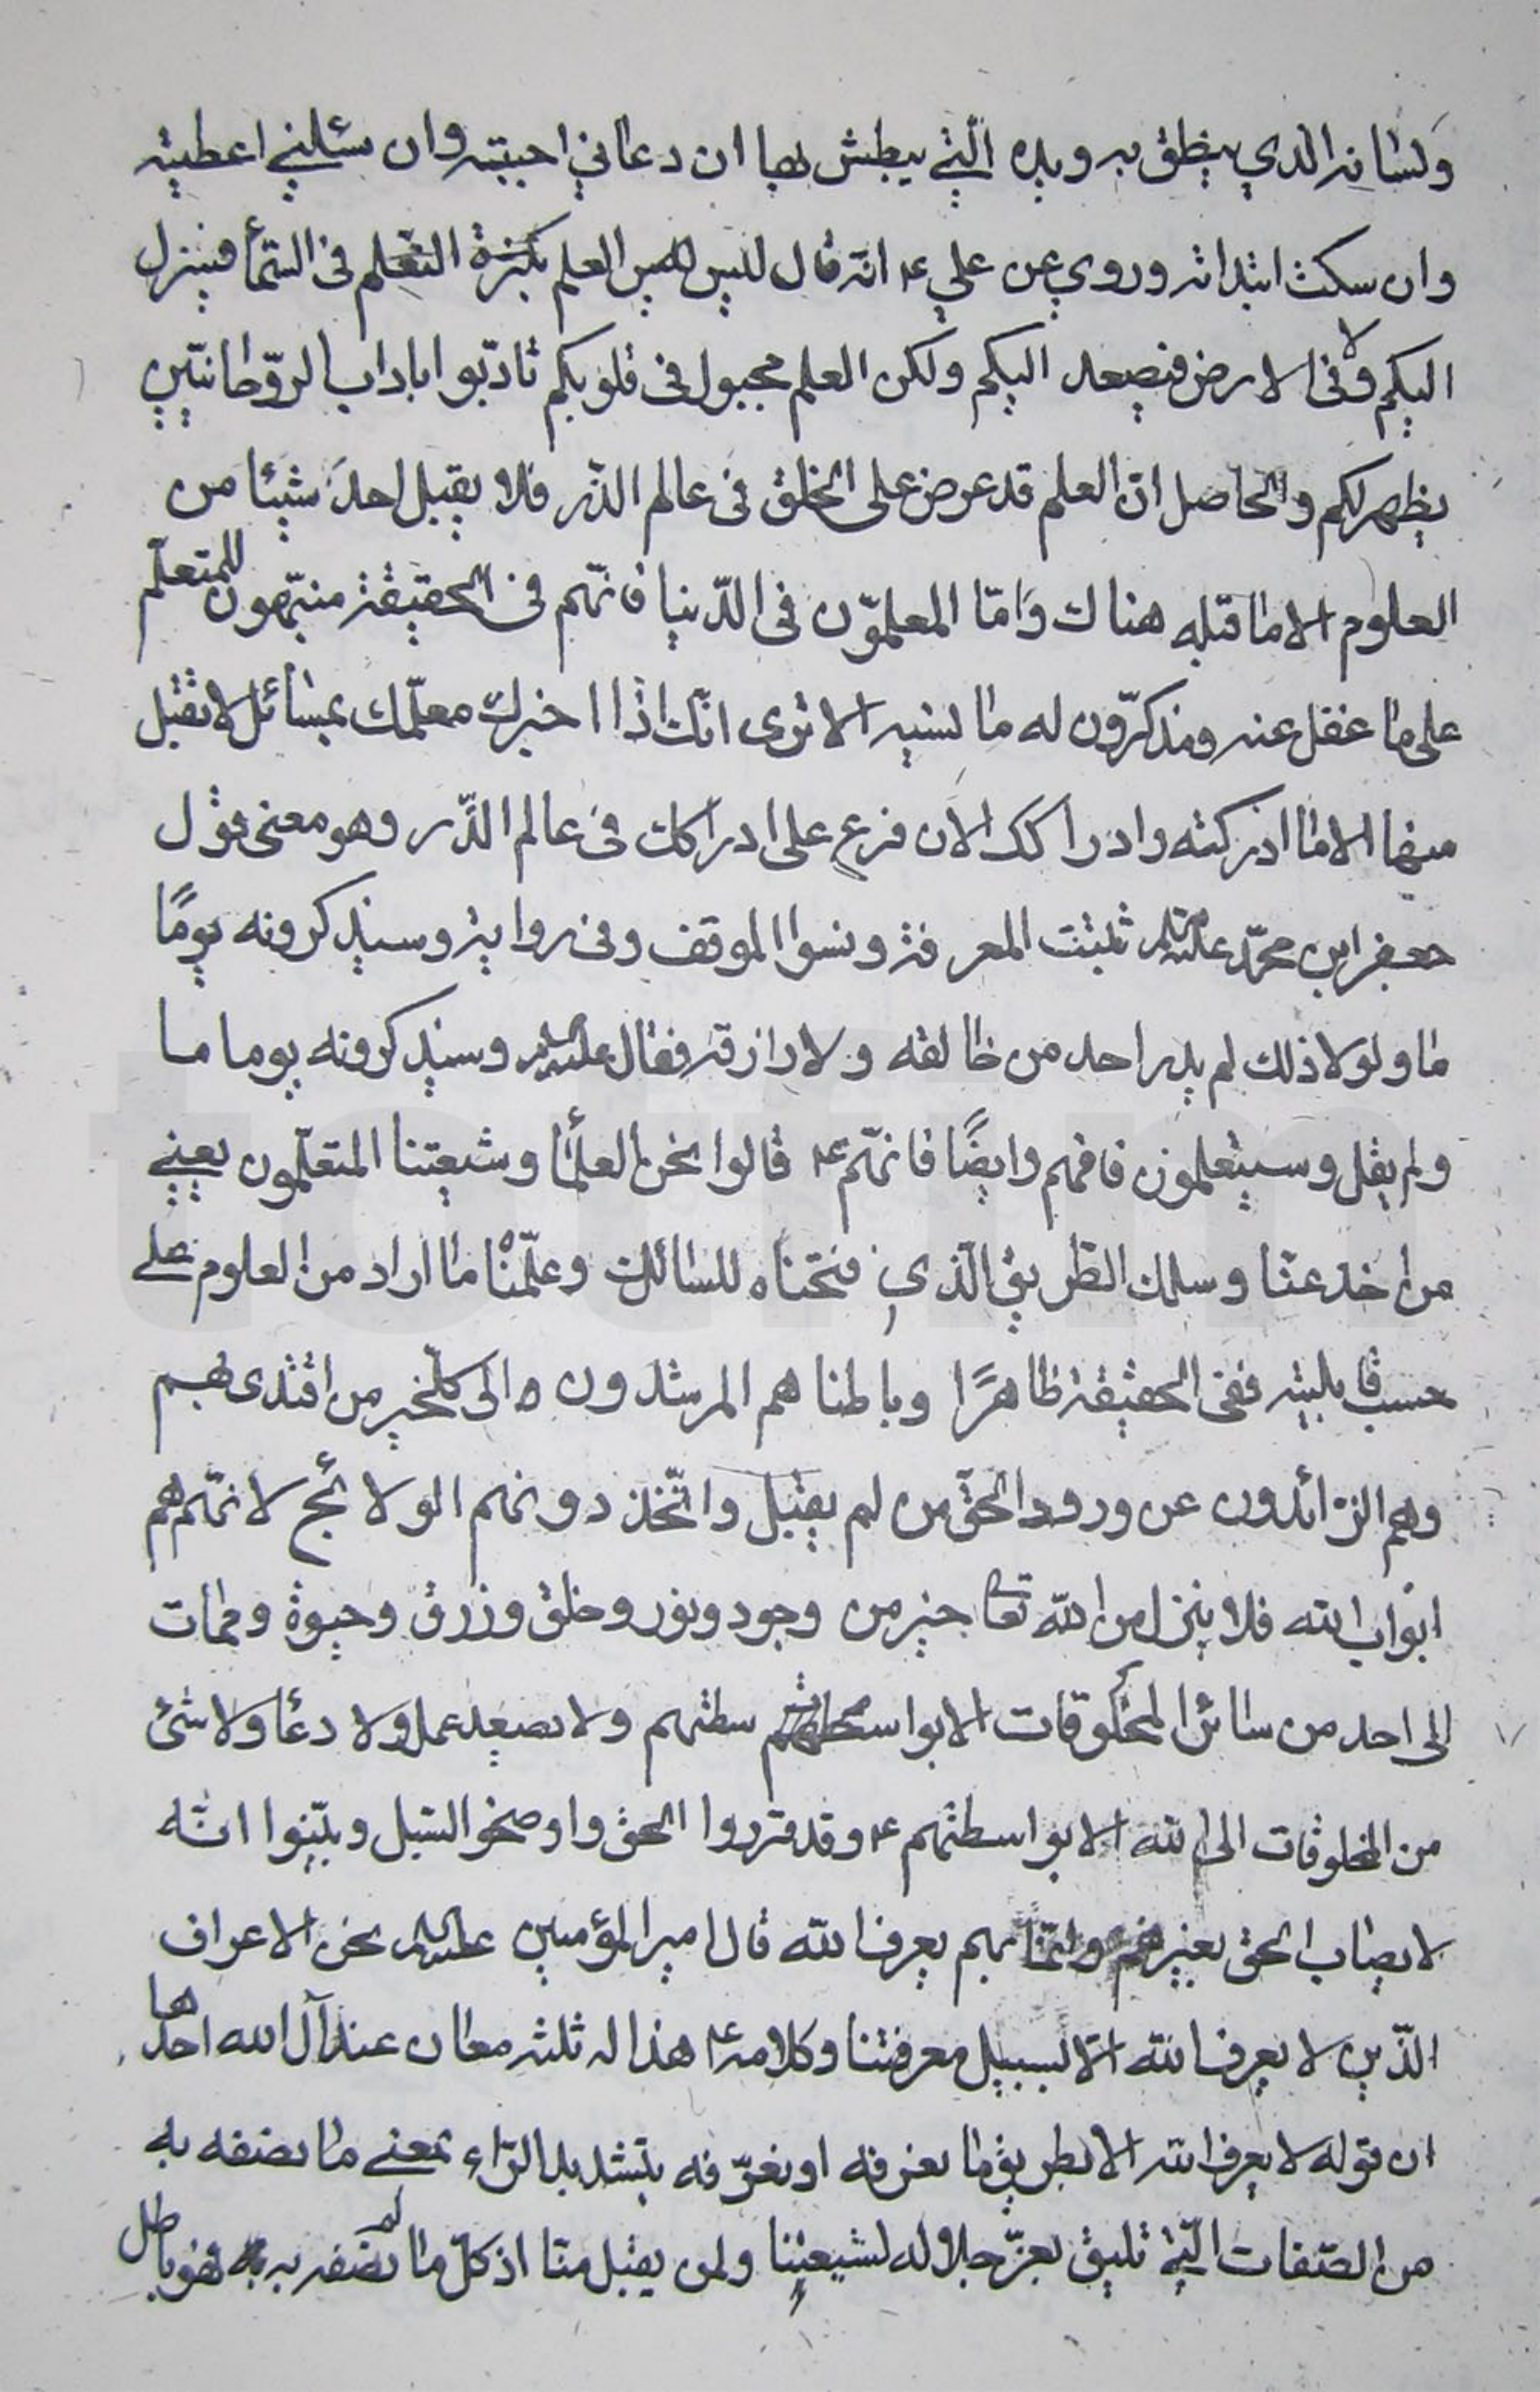 ولسانه الذي ينطق به ويده الّتي يبطش بها ان دعاني اجبته وان سئلني اعطيته
وان سكت ابتداته وروي عن علي ع انّه قال ليس العلم بكثرة التعلم في السّمآ فينزل
اليكم ولا في الارض فيصعد اليكم ولكن العلم مجبول في قلوبكم تادّبوا باداب الروّحانيّين
يظهر لكم والحاصل انّ العلم قد عرض على الخلق في عالم الذّر فلا يقبل احدَ شيئا من
العلوم الا ما قبله هناك وَامّا المعلموّن في الدّنيا فانّهم في الحقيقة منبّهون للمتعلّم
على ما غفل عنه ومذكرّون له ما نسيه الا ترى انّك اذا اخبرك معلّمك بمسائل لا تقبل
منها الا ما ادركته وادراكك الان فرع على ادراكك في عالم الذّر وهو معنى قول
جعفر ابن محمّد عليهما السلام ثبتت المعرفة ونسوا الموقف وفي رواية وسيذكرونه يومًا
ما ولولا ذلك لم يدر احد من خالقه ولا رازقه فقال عليه السلام وسيذكرونه يوما ما
ولم يقل وسيتعلمون فافهم وايضًا فانّهم ع قالوا نحن العلمآ وشيعتنا المتعلّمون يعني
من اخذ عنّا وسلك الطّريق الّذي فتحناه للسائلين وعلّمنْا ما اراد من العلوم على
حسب قابليته ففي الحقيقة ظاهرًا وباطنا هم المرشدون الى كلّ خير من اقتدى بهم
وهم الذّائدون عن ورود الحقّ من لم يقبل واتّخذ دونهم الولائج لانّهم هم
ابواب الله فلا ينزل من الله تعا خير من وجود ونور وخلق ورزق وحيوة وممات
الى احد من سائر المخلوقات الا بواسطتهم ولا يصعد عمل ولا دعآ ولا شئ
من المخلوقات الى الله الا بواسطتهم ع وقد قرروا الحق واوضحوا السّبل وبيّنوا انّه
لا يصاب الحق بغيرهم وانّما بهم يعرف الله قال امير المؤمنين عليه السلام نحن الاعراف
الّذين لا يعرف الله الّا بسبيل معرفتنا وكلامه ع هذا له ثلثه معان عند آل الله احدها
ان قوله لا يعرف الله الا بطريق ما نعرفه او نعرّفه بتشديد الرّاء بمعنى ما نصفه به
من الصّفات الّتي تليق بعزّ جلاله لشيعتنا ولمن يقبل منّا اذ كلّ ما لم نصفه به فهو باطل